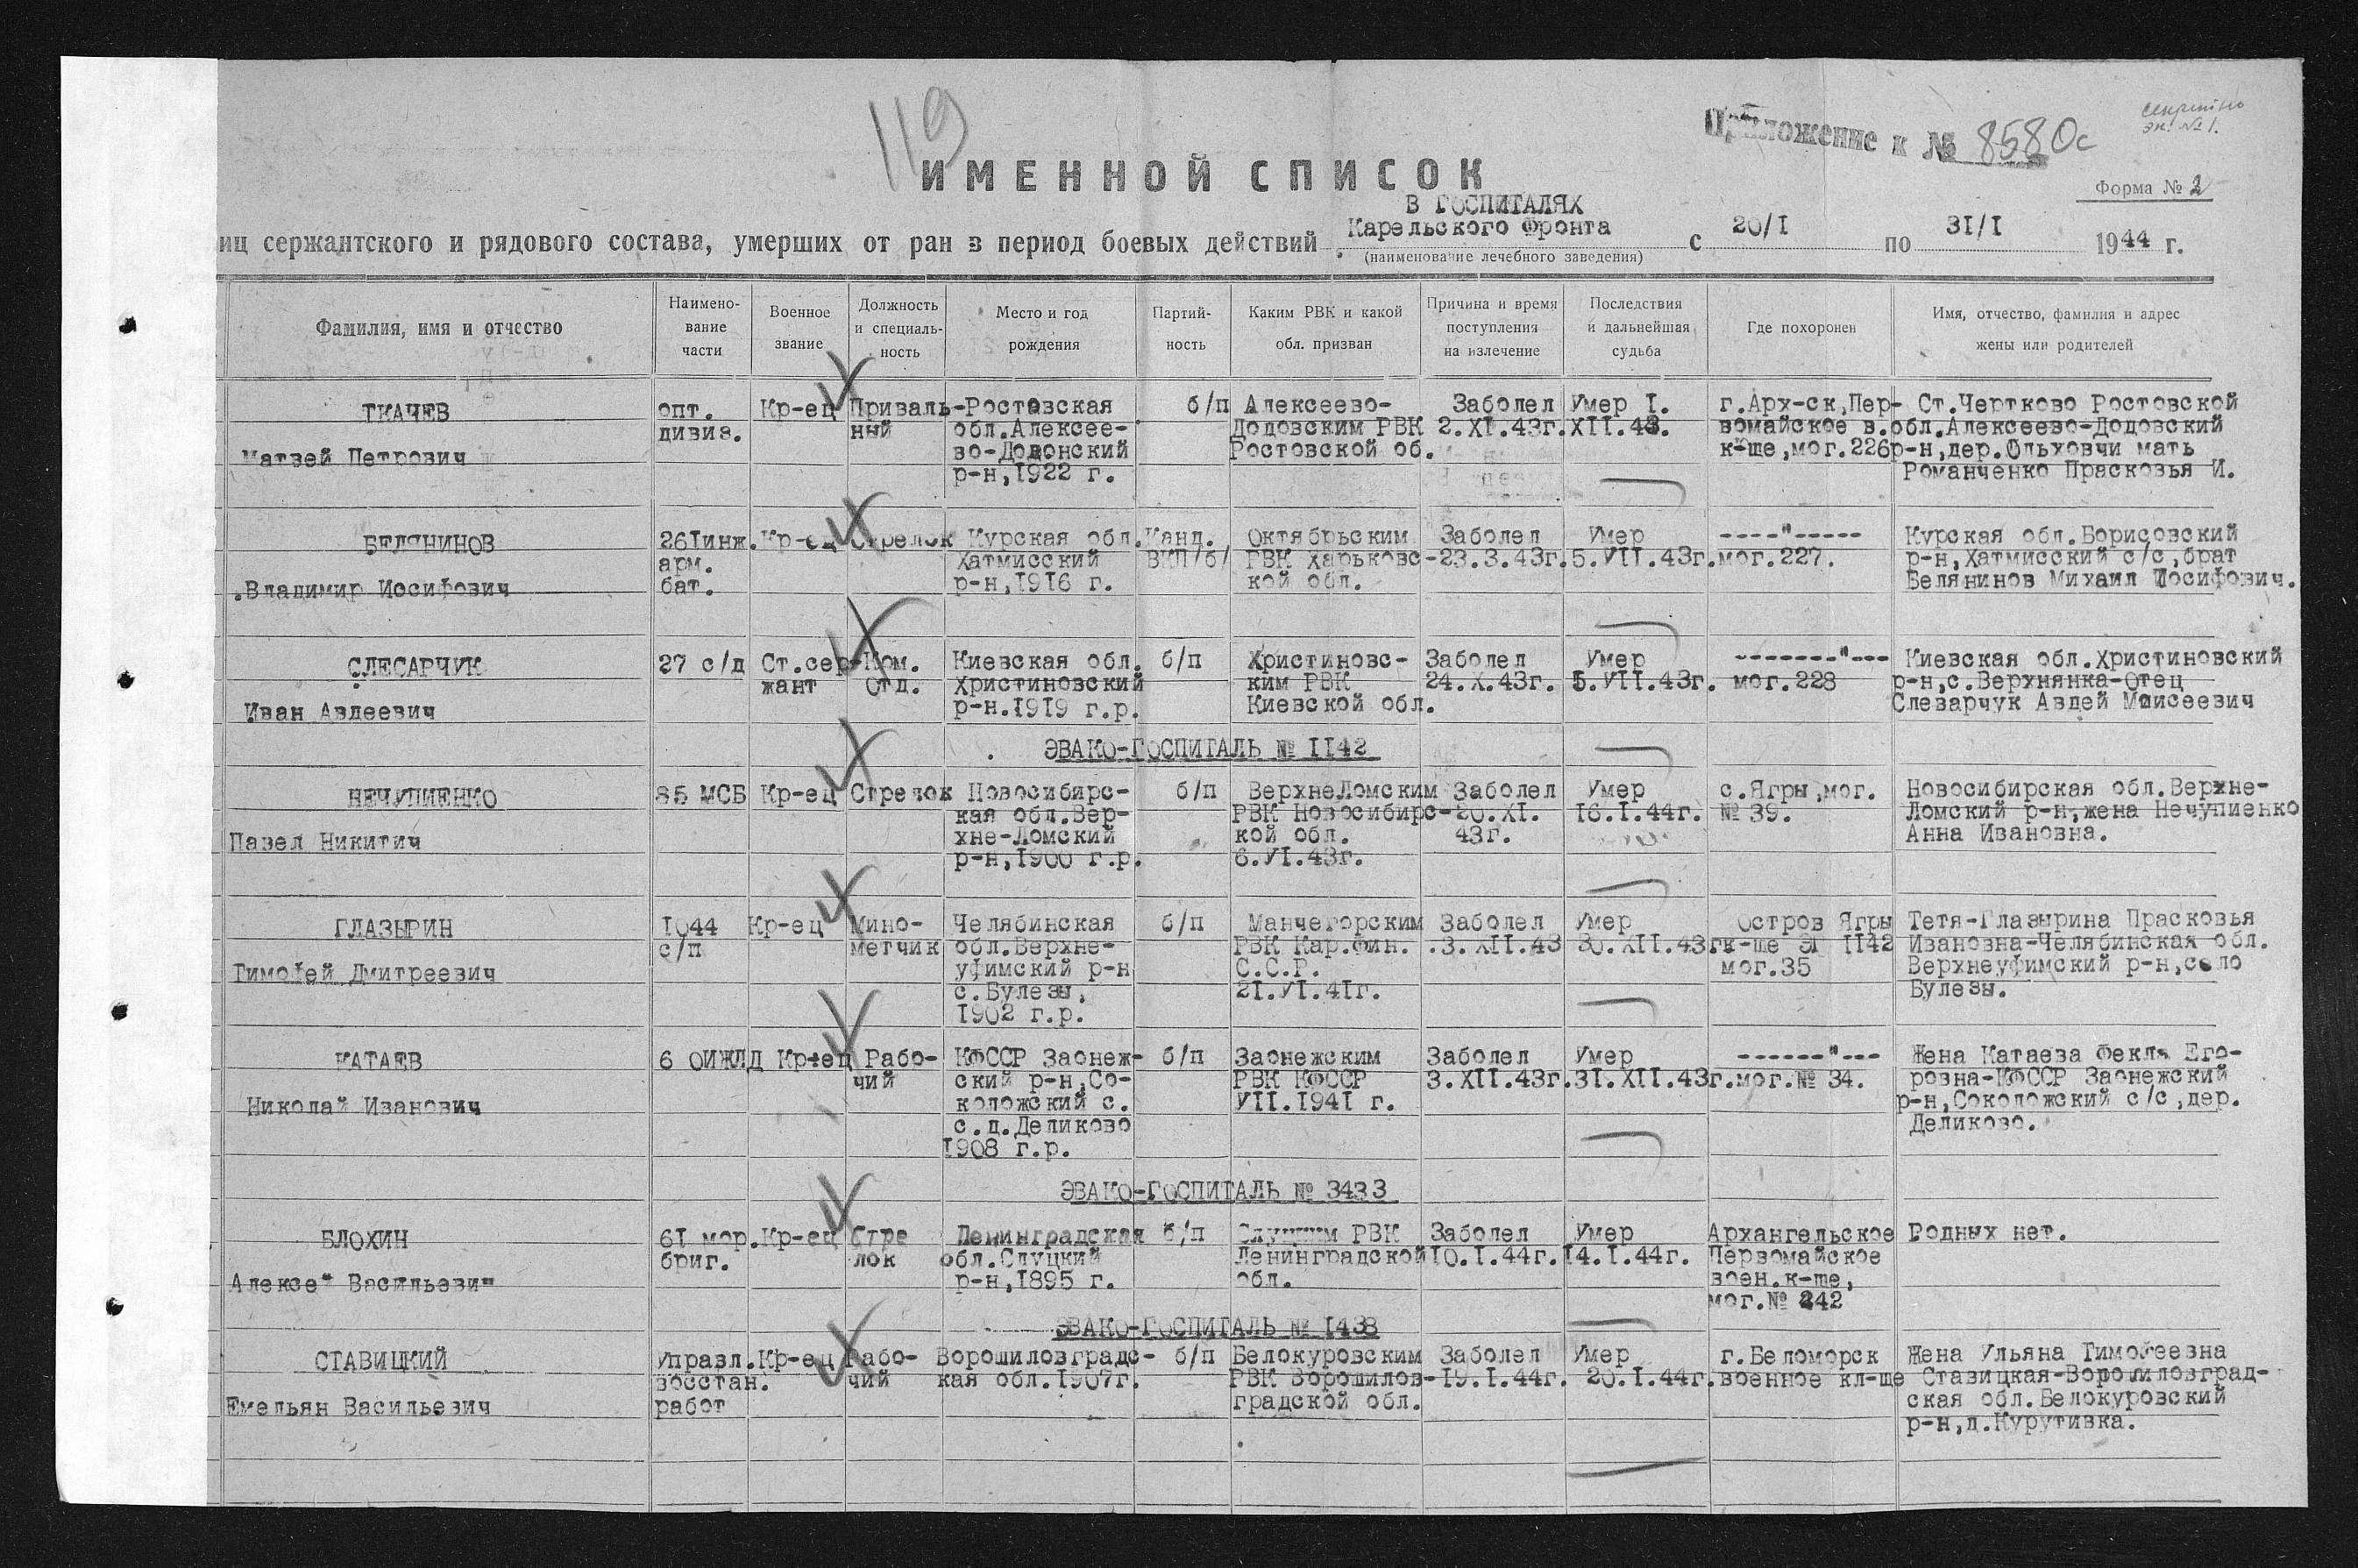 119
Приложение к № 8580с
секретно
эк. №1.
ИМЕННОЙ СПИСОК
Форма № 2
В ГОСПИТАЛЯХ
Карельского Фронта
иц сержантского и рядового состава, умерших от ран в период боевых действий с 20/I по 31/I 1944 г.
(наименование лечебного заведения)
Фамилия, имя и отчество
Наимено-
вание
части
Военное
звание
Должность
и специаль-
ность
Место и год
рождения
Партий-
ность
Каким РВК и какой
обл. призван
Причина и время
поступления
на излечение
Последствия
и дальнейшая
судьба
Где похоронен
Имя, отчество, фамилия и адрес
жены или родителей
ТКАЧЕВ
Матвей Петрович
опт.
дивиз.
Кр-ец
Приваль-
ный
Ростовская
обл.Алексее-
во-Додонский
р-н,1922 г.
б/п
Алексеево-
Додовским РВК
Ростовской об.
Заболел
2.XI.43г.
Умер I.
XII.43.
г.Арх-ск,Пер-
вомайское в.
к-ще,мог.226
Ст.Чертково Ростовской
обл.Алексеево-Додовский
р-н,дер.Ольховчи мать
Романченко Прасковья И.
БЕЛЯНИНОВ
.Владимир Иосифович
261инж.
арм.
бат.
Кр-ец
Стрелок
Курская обл.
Хатмисский
р-н,1916 г.
Канд.
ВКП/б/
Октябрьским
РВК Харьковс-
кой обл.
Заболел
23.3.43г.
Умер
5.УII.43г.
----"-----
мог.227.
Курская обл.Борисовский
р-н,Хатмисский с/с,брат
Белянинов Михаил Иосифович.
СЛЕСАРЧУК
Иван Авдеевич
27 с/д
Ст.сер-
жант
Ком.
Отд.
Киевская обл.
Христиновский
р-н.1919 г.р.
б/п
Христиновс-
ким РВК
Киевской обл.
Заболел
24.X.43г.
Умер
5.УII.43г.
-------"---
мог.228
Киевская обл.Христиновский
р-н,с.Верхнянка-Отец
Слезарчук Авдей Моисеевич
ЭВАКО-ГОСПИТАЛЬ № II42
НЕЧУПИЕНКО
Павел Никитич
85 МСБ
Кр-ец
Стрелок
Новосибирс-
кая обл.Вер-
хне-Ломский
р-н,1900 г.р.
б/п
ВерхнеЛомским
РВК Новосибирс-
кой обл.
6.УI.43г.
Заболел
20.XI.
43г.
Умер
16.I.44г.
с.Ягры,мог.
№ 39.
Новосибирская обл.Верхне-
Ломский р-н,жена Нечупиенко
Анна Ивановна.
ГЛАЗЫРИН
Тимофей Дмитреевич
1044
с/п
Кр-ец
Мино-
метчик
Челябинская
обл.Верхне-
уфимский р-н
с.Булезы,
1902 г.р.
б/п
Манчегорским
РВК Кар.Фин.
С.С.Р.
21.УI.41г.
Заболел
.3.XII.43
Умер
30.XII.43г
Остров Ягры
к-ще ЭГ 1142
мог.35
Тетя-Глазырина Прасковья
Ивановна-Челябинская обл.
Верхнеуфимский р-н,село
Булезы.
КАТАЕВ
Николай Иванович
6 ОИЖЛД
Кр-ец
Рабо-
чий
КФССР Заонеж-
ский р-н,Со-
коложский с.
с.д.Деликово
1908 г.р.
б/п
Заонежским
РВК КФССР
УII.1941 г.
Заболел
3.XII.43г.
Умер
31.XII.43г.
------"---
мог.№ 34.
Жена Катаева Фекла Его-
ровна-КФССР Заонежский
р-н,Соколожский с/с,дер.
Деликово.
ЭВАКО-ГОСПИТАЛЬ № 3433
БЛОХИН
Алексе" Васильеви"
61 мор.
бриг.
Кр-ец
Стре
лок
Ленинградская
обл.Слуцкий
р-н,1895 г.
б/п
Слуцким РВК
Ленинградской
обл.
Заболел
10.I.44г.
Умер
14.I.44г.
Архангельское
Первомайское
воен.к-ще,
мог.№ 242
Родных нет.
ЭВАКО-ГОСПИТАЛЬ № 1438
СТАВИЦКИЙ
Емельян Васильевич
Управл.
восстан.
работ
Кр-ец
Рабо-
чий
Ворошиловградс-
кая обл.1907г.
б/п
Белокуровским
РВК Ворошилов-
градской обл.
Заболел
19.I.44г.
Умер
20.I.44г.
г.Беломорск
военное кл-ще
Жена Ульяна Тимофеевна
Ставицкая-Ворошиловград-
ская обл.Белокуровский
р-н,д.Курутивка.